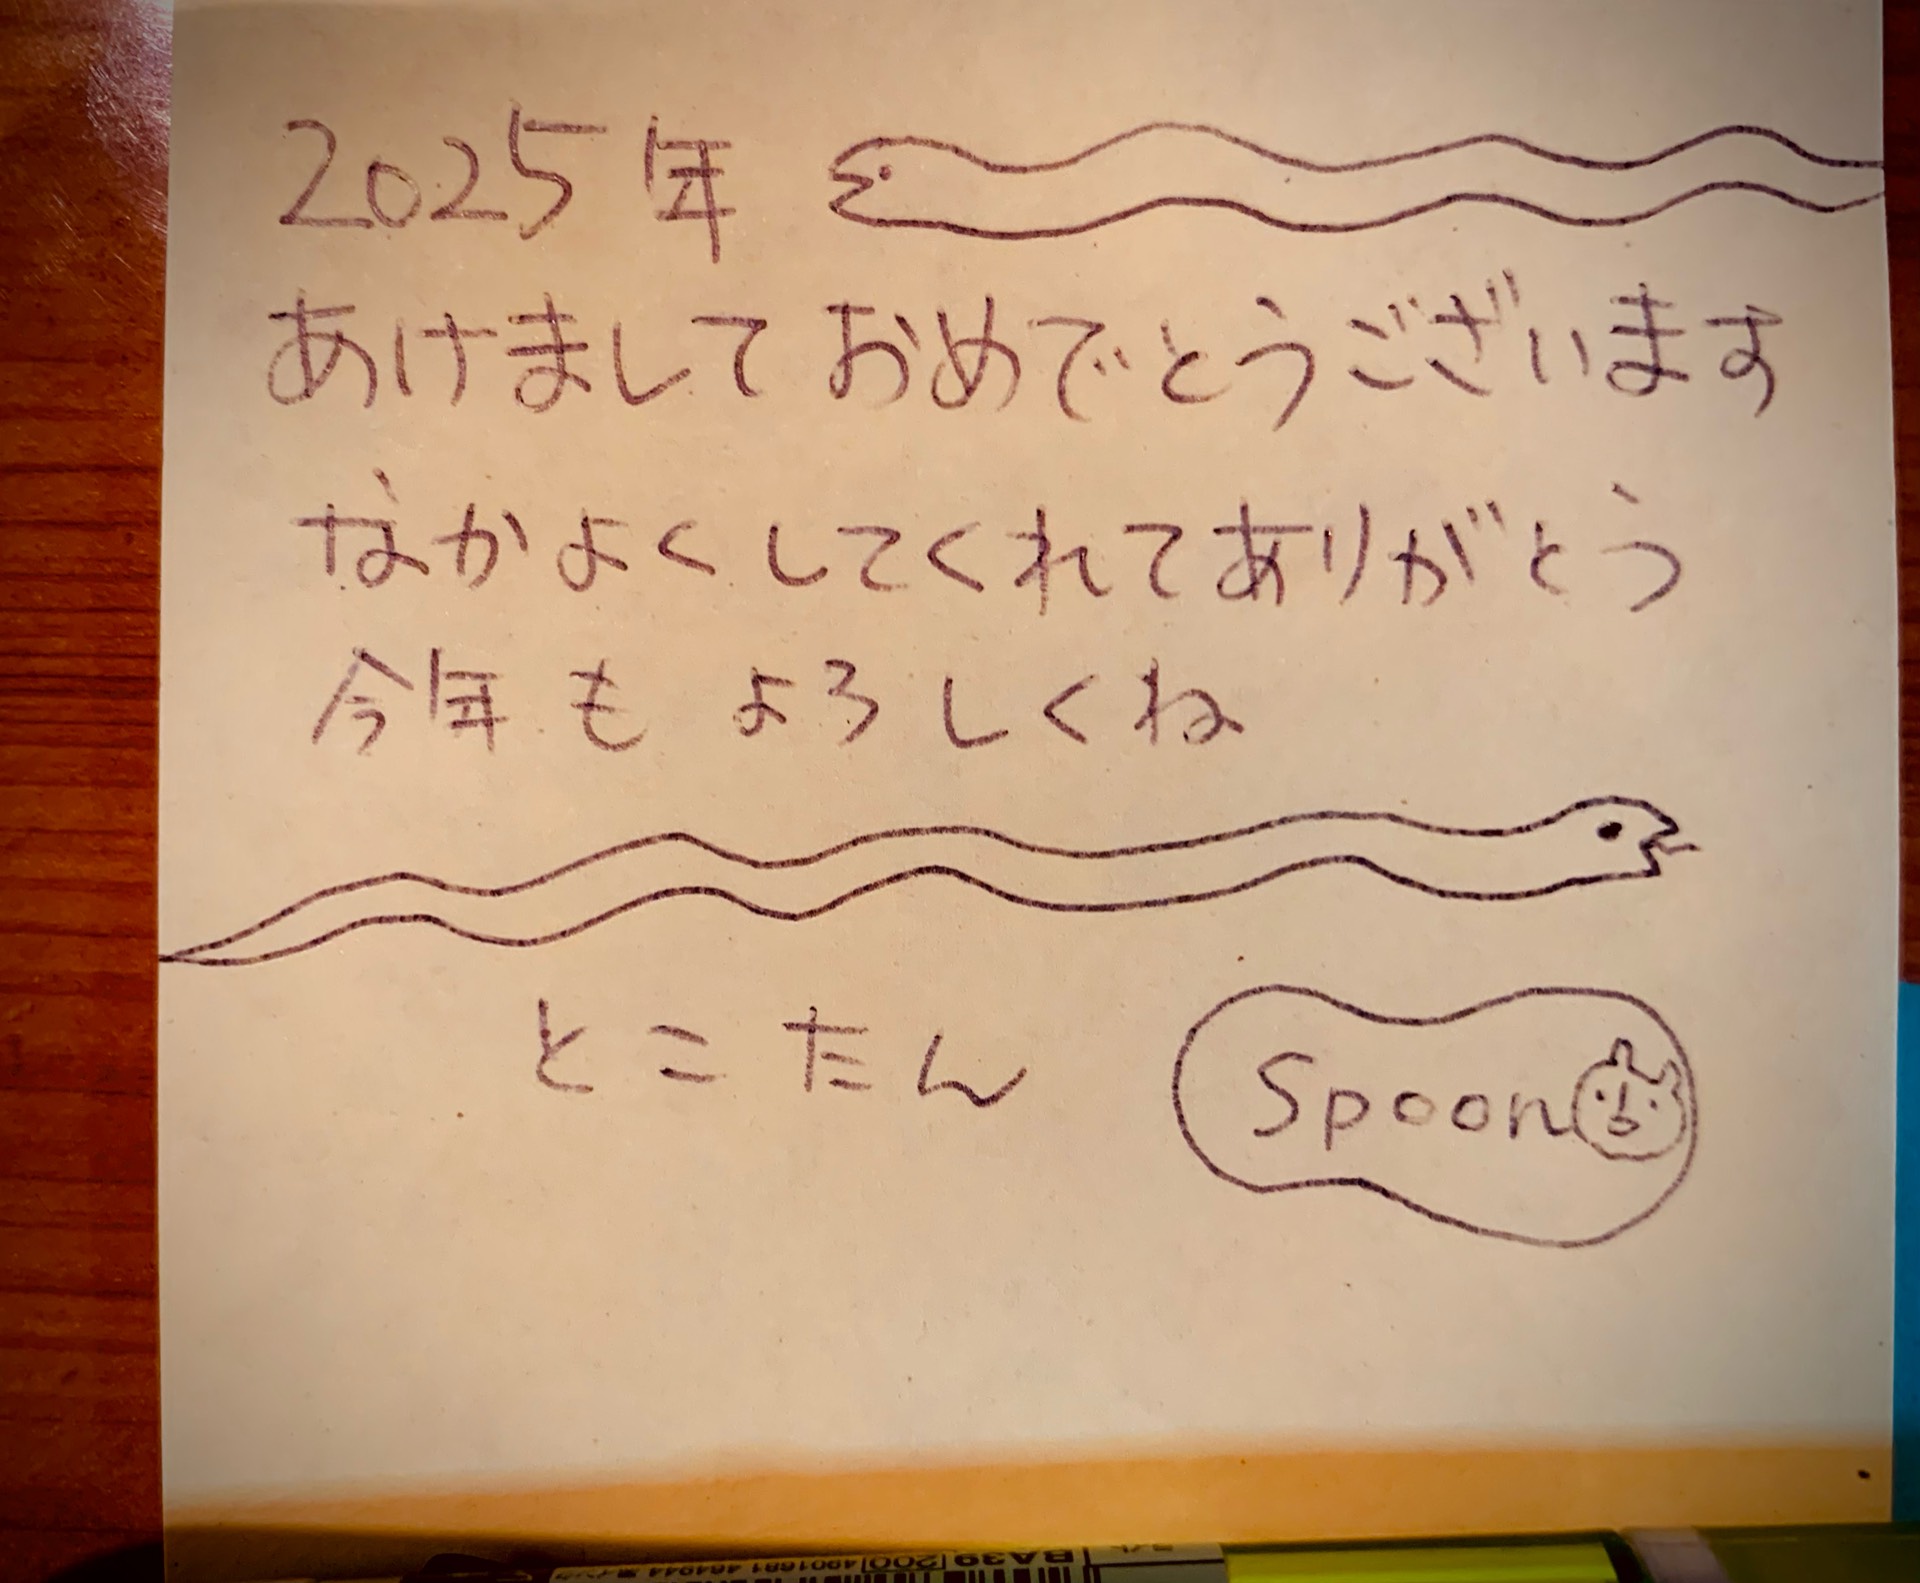 2025年
あけまして おめでとうございます
なかよくしてくれてありがとう
今年も よろしくね
とこたん
Spoon
BA39 200 4901681 464944